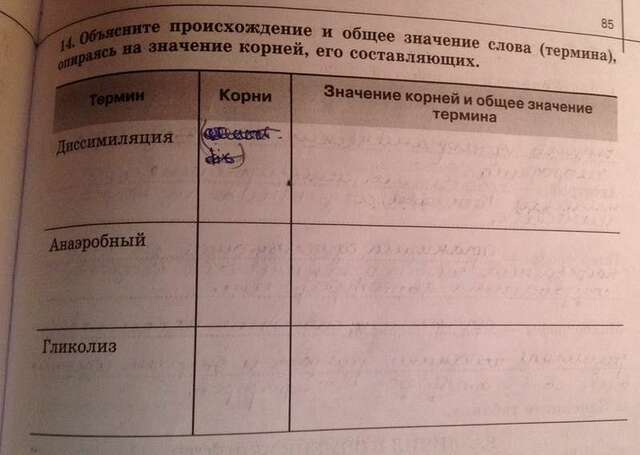 85
14. Объясните происхождение и общее значение слова (термина),
опираясь на значение корней, его составляющих.
Термин Корни Значение корней и общее значение
термина
Диссимиляция
Анаэробный
Гликолиз